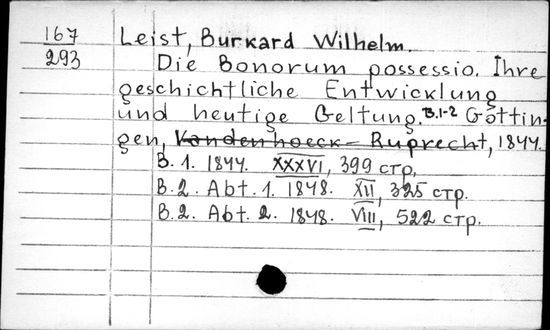 167 Leist, Burkard Wilhelm.
293 Die Bonorum possessio. Ihre
geschichtliche Entwicklung
und heutige Geltung. B.1-2 Götting-
gen, Vandenhoeck-Ruprecht, 1844.
B. 1. 1844. XXXVI, 399 стр.
B. 2. Abt. 1. 1848. XII, 325 стр.
B. 2. Abt. 2. 1848. VIII, 522 стр.